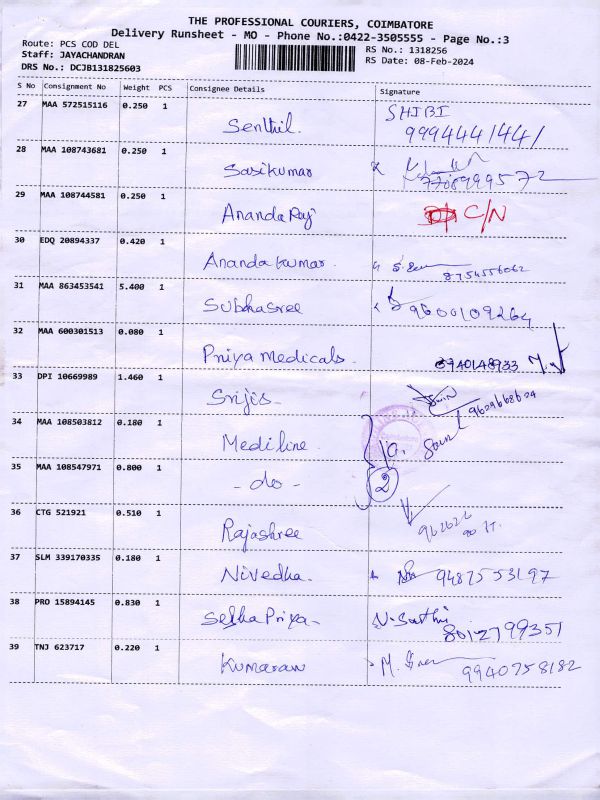 THE PROFESSIONAL COURIERS, COIMBATORE
Delivery Runsheet - MO - Phone No.:0422-3505555 - Page No.:3
Route: PCS COD DEL
Staff: JAYACHANDRAN
DRS No.: DCJB131825603
RS No.: 1318256
RS Date: 08-Feb-2024
S No Consignment No Weight PCS Consignee Details Signature
27 MAA 572515116 0.250 1 Senthil. SHIBI
9994441441
28 MAA 108743681 0.250 1 Sasikumar
7708999572
29 MAA 108744581 0.250 1 Ananda Raj C/N
30 EDQ 20894337 0.420 1 Ananda Kumar.
8754556062
31 MAA 863453541 5.400 1 Subhasree 9600109264
32 MAA 600301513 0.080 1 Priya Medicals. 8940148933
33 DPI 10669989 1.460 1 Srijis 9629668624
34 MAA 108503812 0.180 1 Mediline
35 MAA 108547971 0.800 1 - do - 2
36 CTG 521921 0.510 1 Rajashree
37 SLM 339170335 0.180 1 Nivedha. 9487553197
38 PRO 15894145 0.830 1 Sebha Priya N. Sathi
8012799351
39 TNJ 623717 0.220 1 Kumaran M.
9940758182